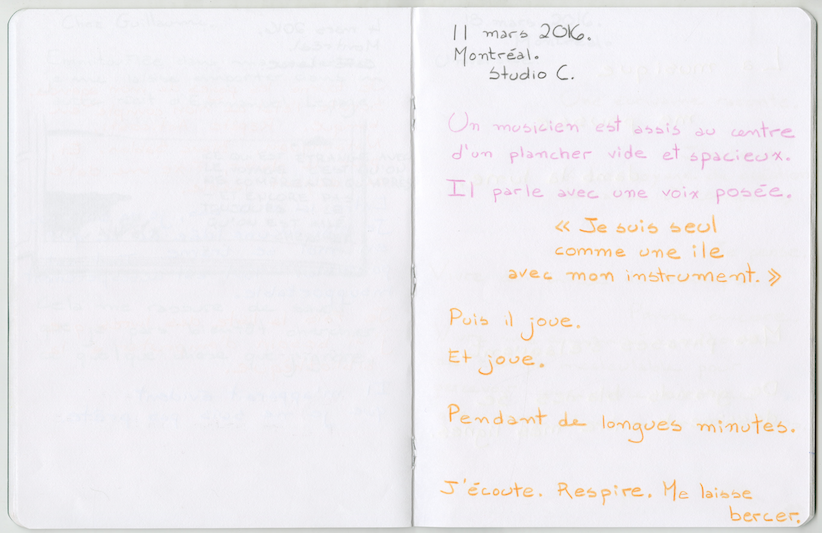 11 mars 2016.
Montréal.
Studio C.
Un musicien est assis au centre
d'un plancher vide et spacieux.
Il parle avec une voix posée.
« Je suis seul
comme une ile
avec mon instrument. »
Puis il joue.
Et joue.
Pendant de longues minutes.
J'écoute. Respire. Me laisse
bercer.